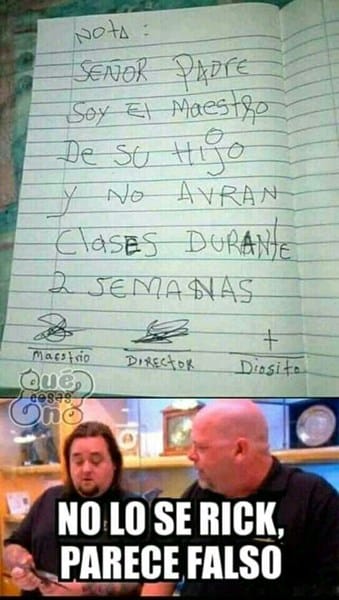 NOTA :
SEÑOR PADre
Soy El MaestRo
De SU HIJO
y NO AVRAN
ClasES DURANte
2 SEMANAS
Maestrio DiRECtoR Diosito
qué cosas no
NO LO SE RICK,
PARECE FALSO